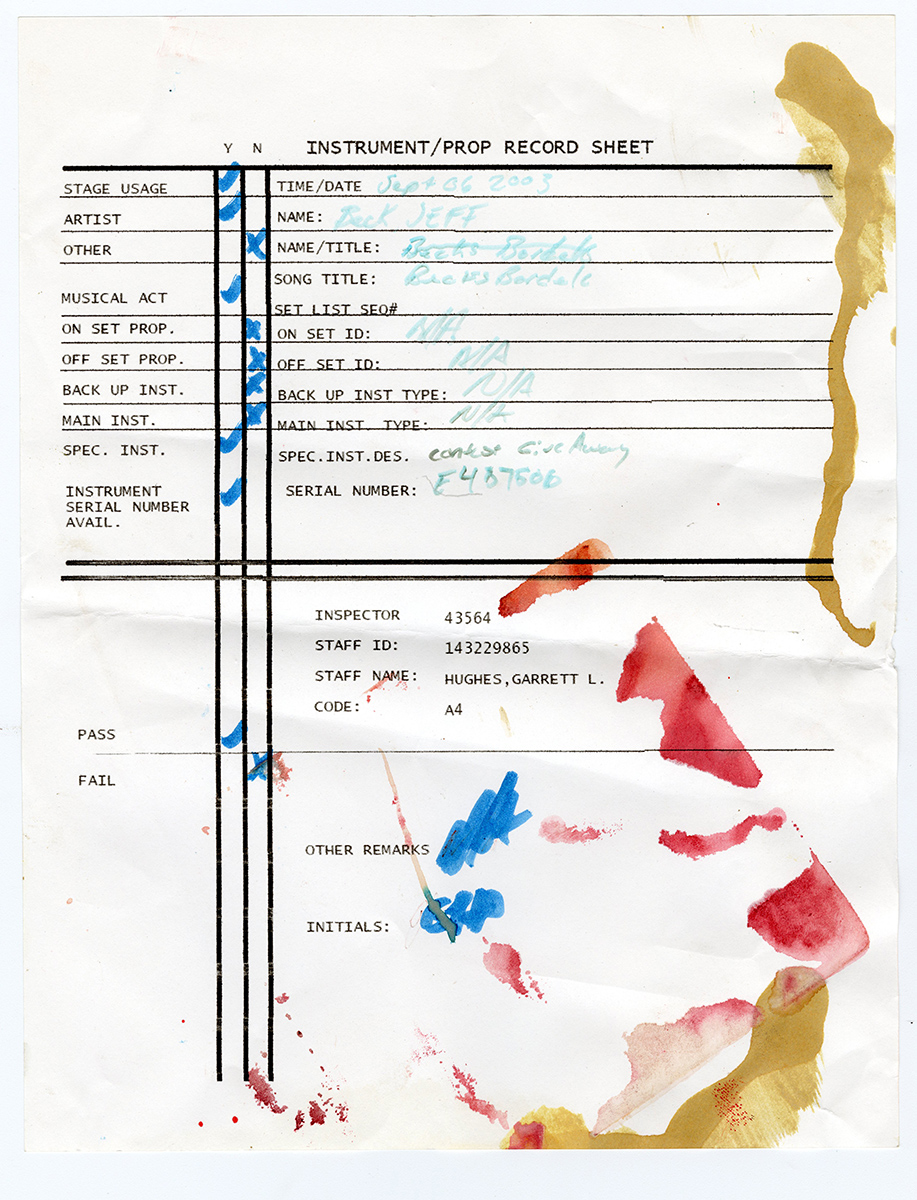 Y N INSTRUMENT/PROP RECORD SHEET
STAGE USAGE TIME/DATE Sept 06 2003
ARTIST NAME: Beck JEFF
OTHER NAME/TITLE: Becks Bordelc
SONG TITLE: Becks Bordelc
MUSICAL ACT
SET LIST SEQ#
ON SET PROP. ON SET ID: N/A
OFF SET PROP. OFF SET ID: N/A
BACK UP INST. BACK UP INST TYPE: N/A
MAIN INST. MAIN INST. TYPE: N/A
SPEC. INST. SPEC.INST.DES. Give Away
INSTRUMENT SERIAL NUMBER: E487506
SERIAL NUMBER
AVAIL.
INSPECTOR 43564
STAFF ID: 143229865
STAFF NAME: HUGHES,GARRETT L.
CODE: A4
PASS
FAIL
OTHER REMARKS
INITIALS: